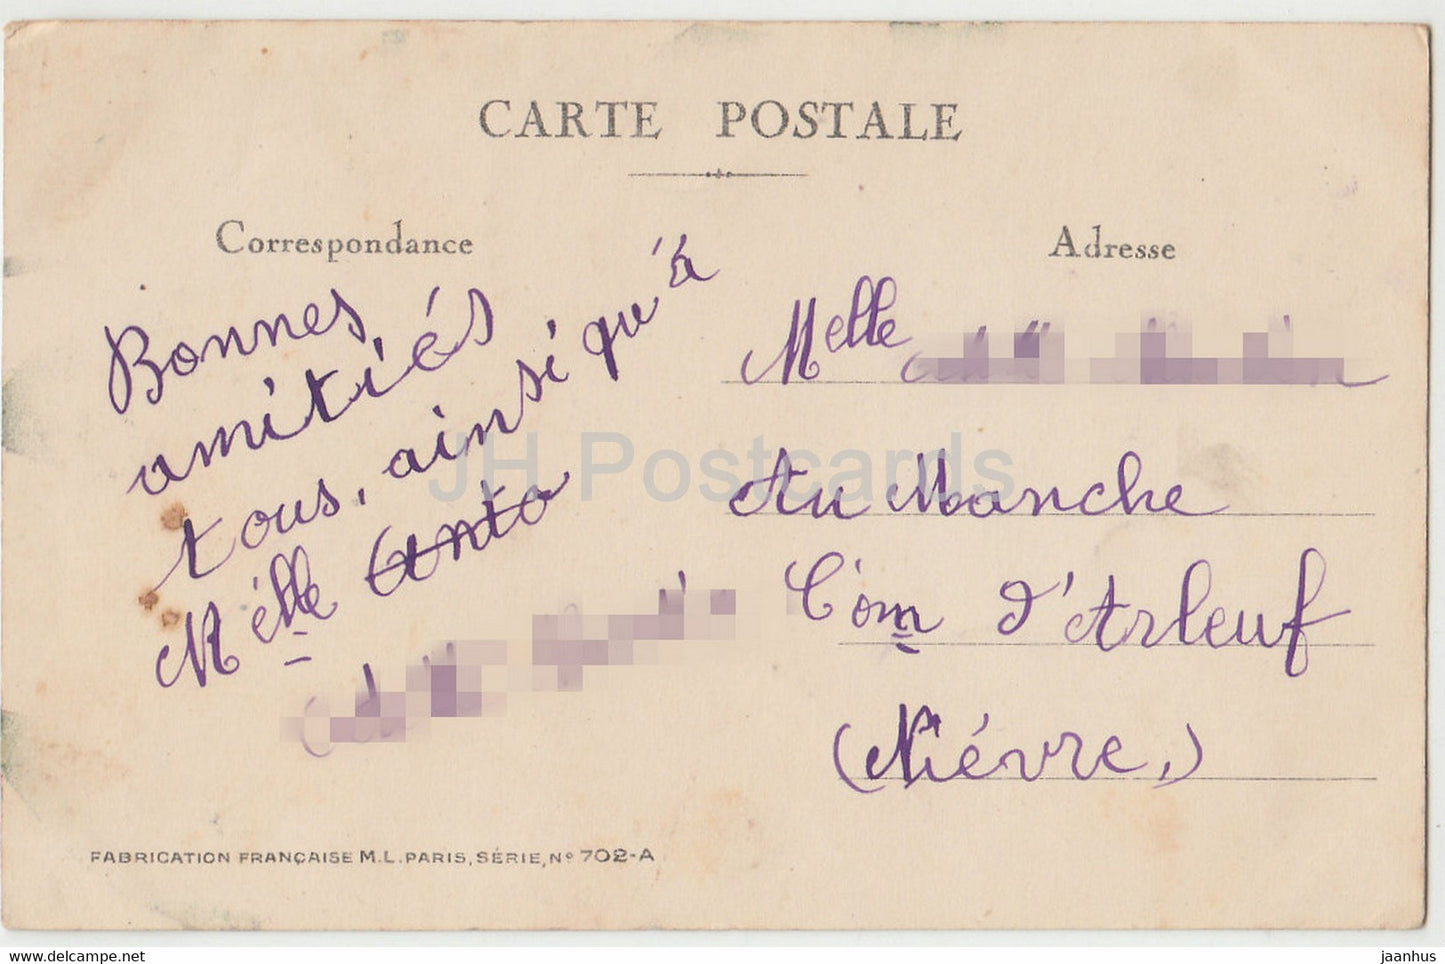 CARTE POSTALE
Correspondance
Bonnes
amitiés
tous, ainsi qu'à
Melle
Adresse
Melle
Au Manche
Com d'Arleuf
(Nièvre,)
FABRICATION FRANÇAISE M.L. PARIS, SÉRIE, No 702-A
JH Postcards
www.delcampe.net
jaanhus